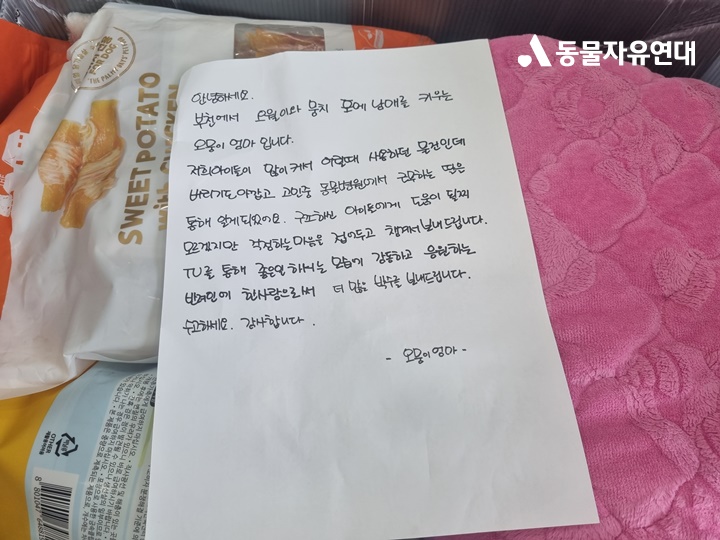 동물자유연대
FOR DOG
SWEET POTATO
with CHICKEN
안녕하세요.
부천에서 오월이와 뭉치 포메 남매를 키우는
오뭉이 엄마 입니다.
저희아이들이 많이커서 어릴때 사용하던 물건인데
버리기도 아깝고 고민중 동물병원에서 근무하는 딸을
통해 알게되었어요. 구조하신 아이들에게 도움이 될찌
모르겠지만 걱정하는마음은 접어두고 챙겨서보내드립니다.
TV를 통해 좋은일 하시는 모습에 감동하고 응원하는
반려인에 한사람으로써 더 많은 박수를 보내드립니다.
수고하세요. 감사합니다.
- 오뭉이 엄마 -